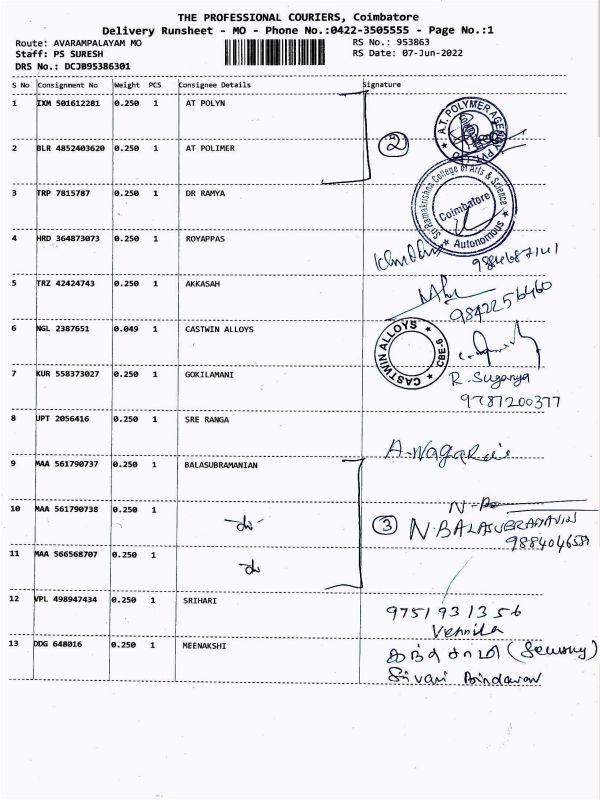 THE PROFESSIONAL COURIERS, Coimbatore
Delivery Runsheet - MO - Phone No.:0422-3505555 - Page No.:1
Route: AVARAMPALAYAM MO
RS No.: 953863
Staff: PS SURESH
RS Date: 07-Jun-2022
DRS No.: DCJB95386301
S No Consignment No Weight PCS Consignee Details Signature
1 IXM 501612281 0.250 1 AT POLYN
A.T. POLYMER AGENCY PVT LTD
2 BLR 4852403620 0.250 1 AT POLIMER
2
3 TRP 7815787 0.250 1 DR RAMYA
Sri Ramakrishna College of Arts & Science
Coimbatore
Autonomous
4 HRD 364873073 0.250 1 ROYAPPAS
9884687141
5 TRZ 42424743 0.250 1 AKKASAH
9842256460
6 NGL 2387651 0.049 1 CASTWIN ALLOYS
CASTWIN ALLOYS CBE-6
7 KUR 558373027 0.250 1 GOKILAMANI
R. Suganya
9787200377
8 UPT 2056416 0.250 1 SRE RANGA
A. Nagaraj
9 MAA 561790737 0.250 1 BALASUBRAMANIAN
10 MAA 561790738 0.250 1 do
3 N. BALASUBRAMANIAN
11 MAA 566568707 1 do
12 VPL 498947434 0.250 1 SRIHARI
9751931356
Vennila
13 DDG 648016 0.250 1 MEENAKSHI
கந்தசாமி